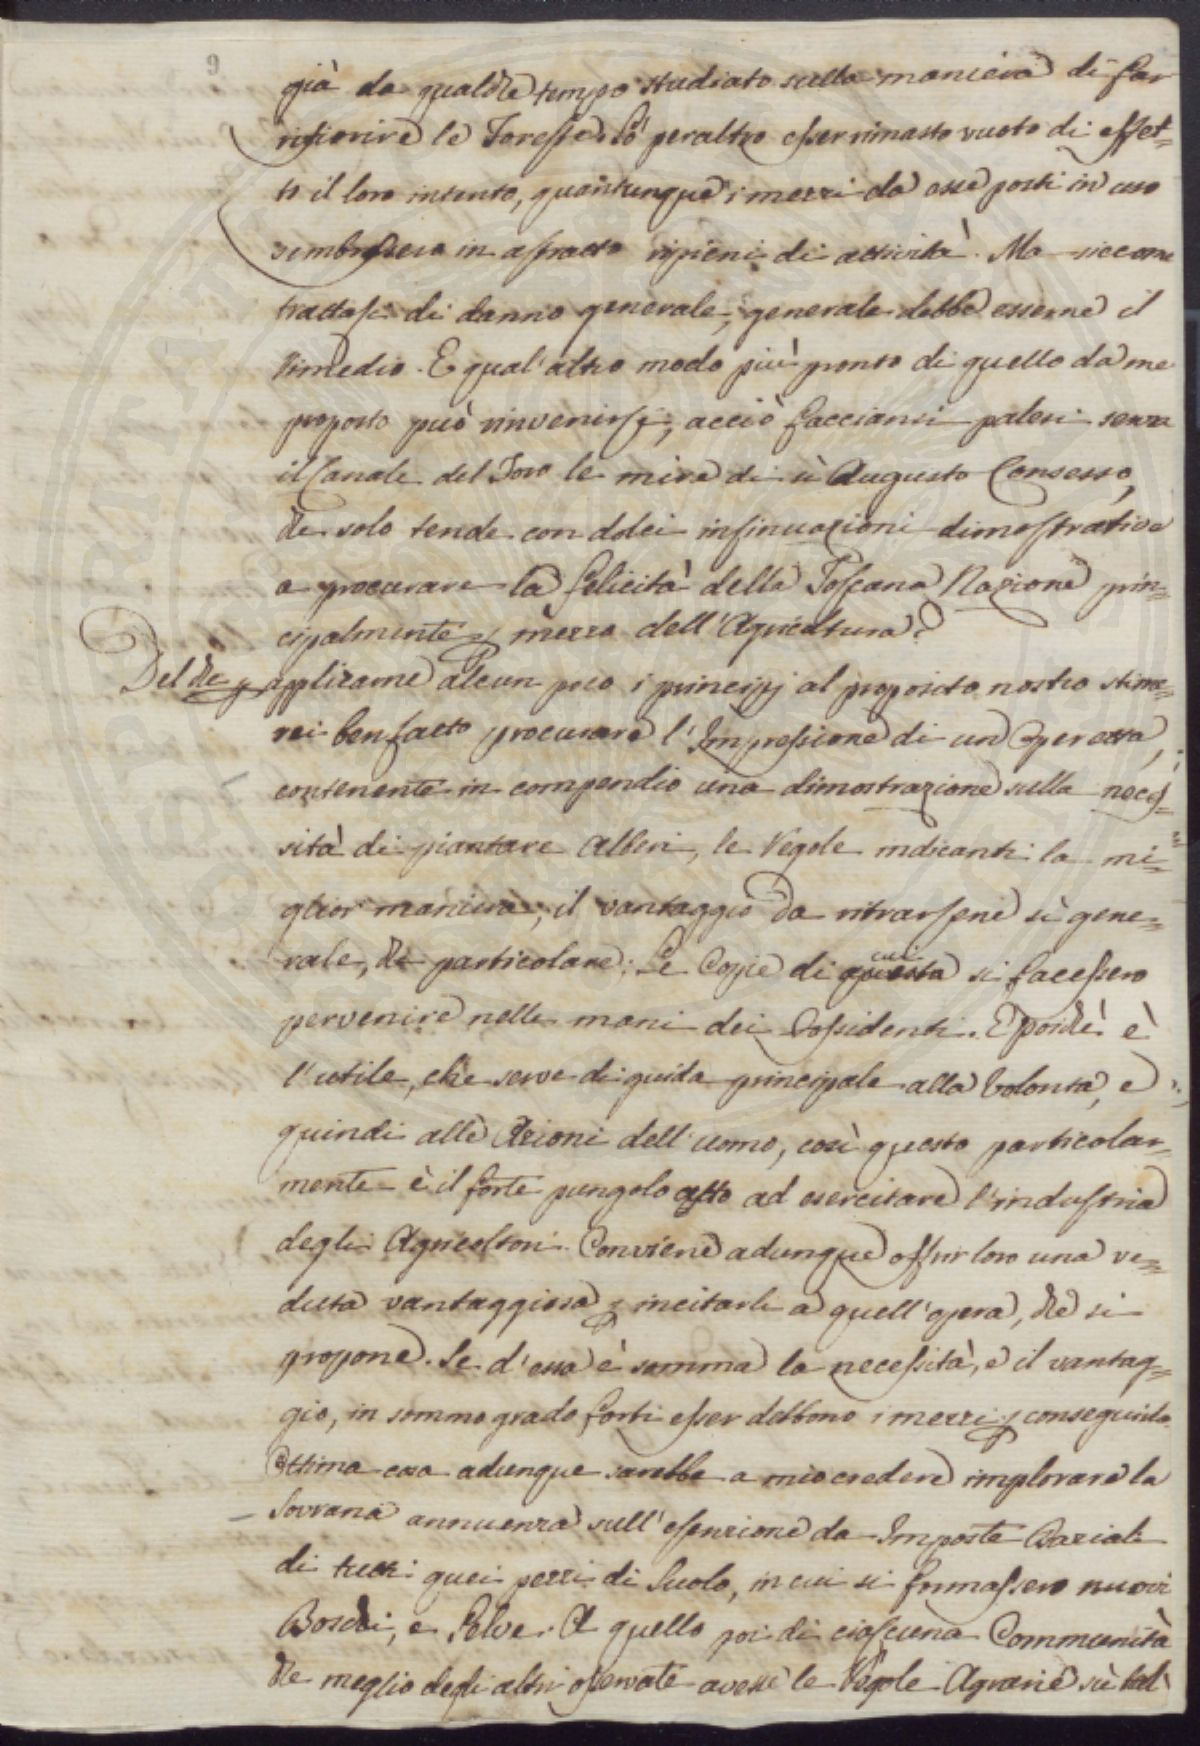 9
già da qualche tempo studiato sulla maniera di far
rifiorire le Foreste. So peraltro esser rimasto vuoto di effet=
to il loro intento, quantunque i mezzi da esse posti in uso
sembrassero in astratto ripieni di attività. Ma siccome
trattasi di danno generale, generale debbe esserne il
rimedio. E qual'altro modo più pronto di quello da me
proposto può rinvenirsi, acciò facciansi palesi senza
il Canale del Foro le mire di sì Augusto Consesso,
che solo tende con dolci insinuazioni dimostrative
a procurare la felicità della Toscana Nazione prin=
cipalmente p mezzo dell'Agricoltura?
Del che p applicarne alcun poco i principj al proposito nostro stime=
rei ben fatto procurare l'Impressione di un Operetta,
contenente in compendio una dimostrazione sulla neces=
sità di piantare Alberi, le Regole indicanti la mi=
glior maniera, il vantaggio da ritrarsene sì gene=
rale, che particolare; Le Copie di cui questa si facessero
pervenire nelle mani dei Possidenti. E poichè è
l'utile, che serve di guida principale alla Volontà, e
quindi alle Azioni dell'uomo, così questo particolar=
mente è il forte pungolo atto ad esercitare l'industria
degli Agricoltori. Conviene adunque offrir loro una ve=
duta vantaggiosa p incitarli a quell'opera, che si
propone. Se d'essa è somma la necessità, e il vantag=
gio, in sommo grado forti esser debbono i mezzi p conseguirlo.
Ottima cosa adunque sarebbe a mio credere implorare la
Sovrana annuenza sull'esenzione da Imposte Daziali
di tutti quei pezzi di Suolo, in cui si formassero nuovi
Boschi, e Selve. A quello poi di ciascuna Communità
che meglio degli altri osservate avesse le Regole Agrarie sù tal